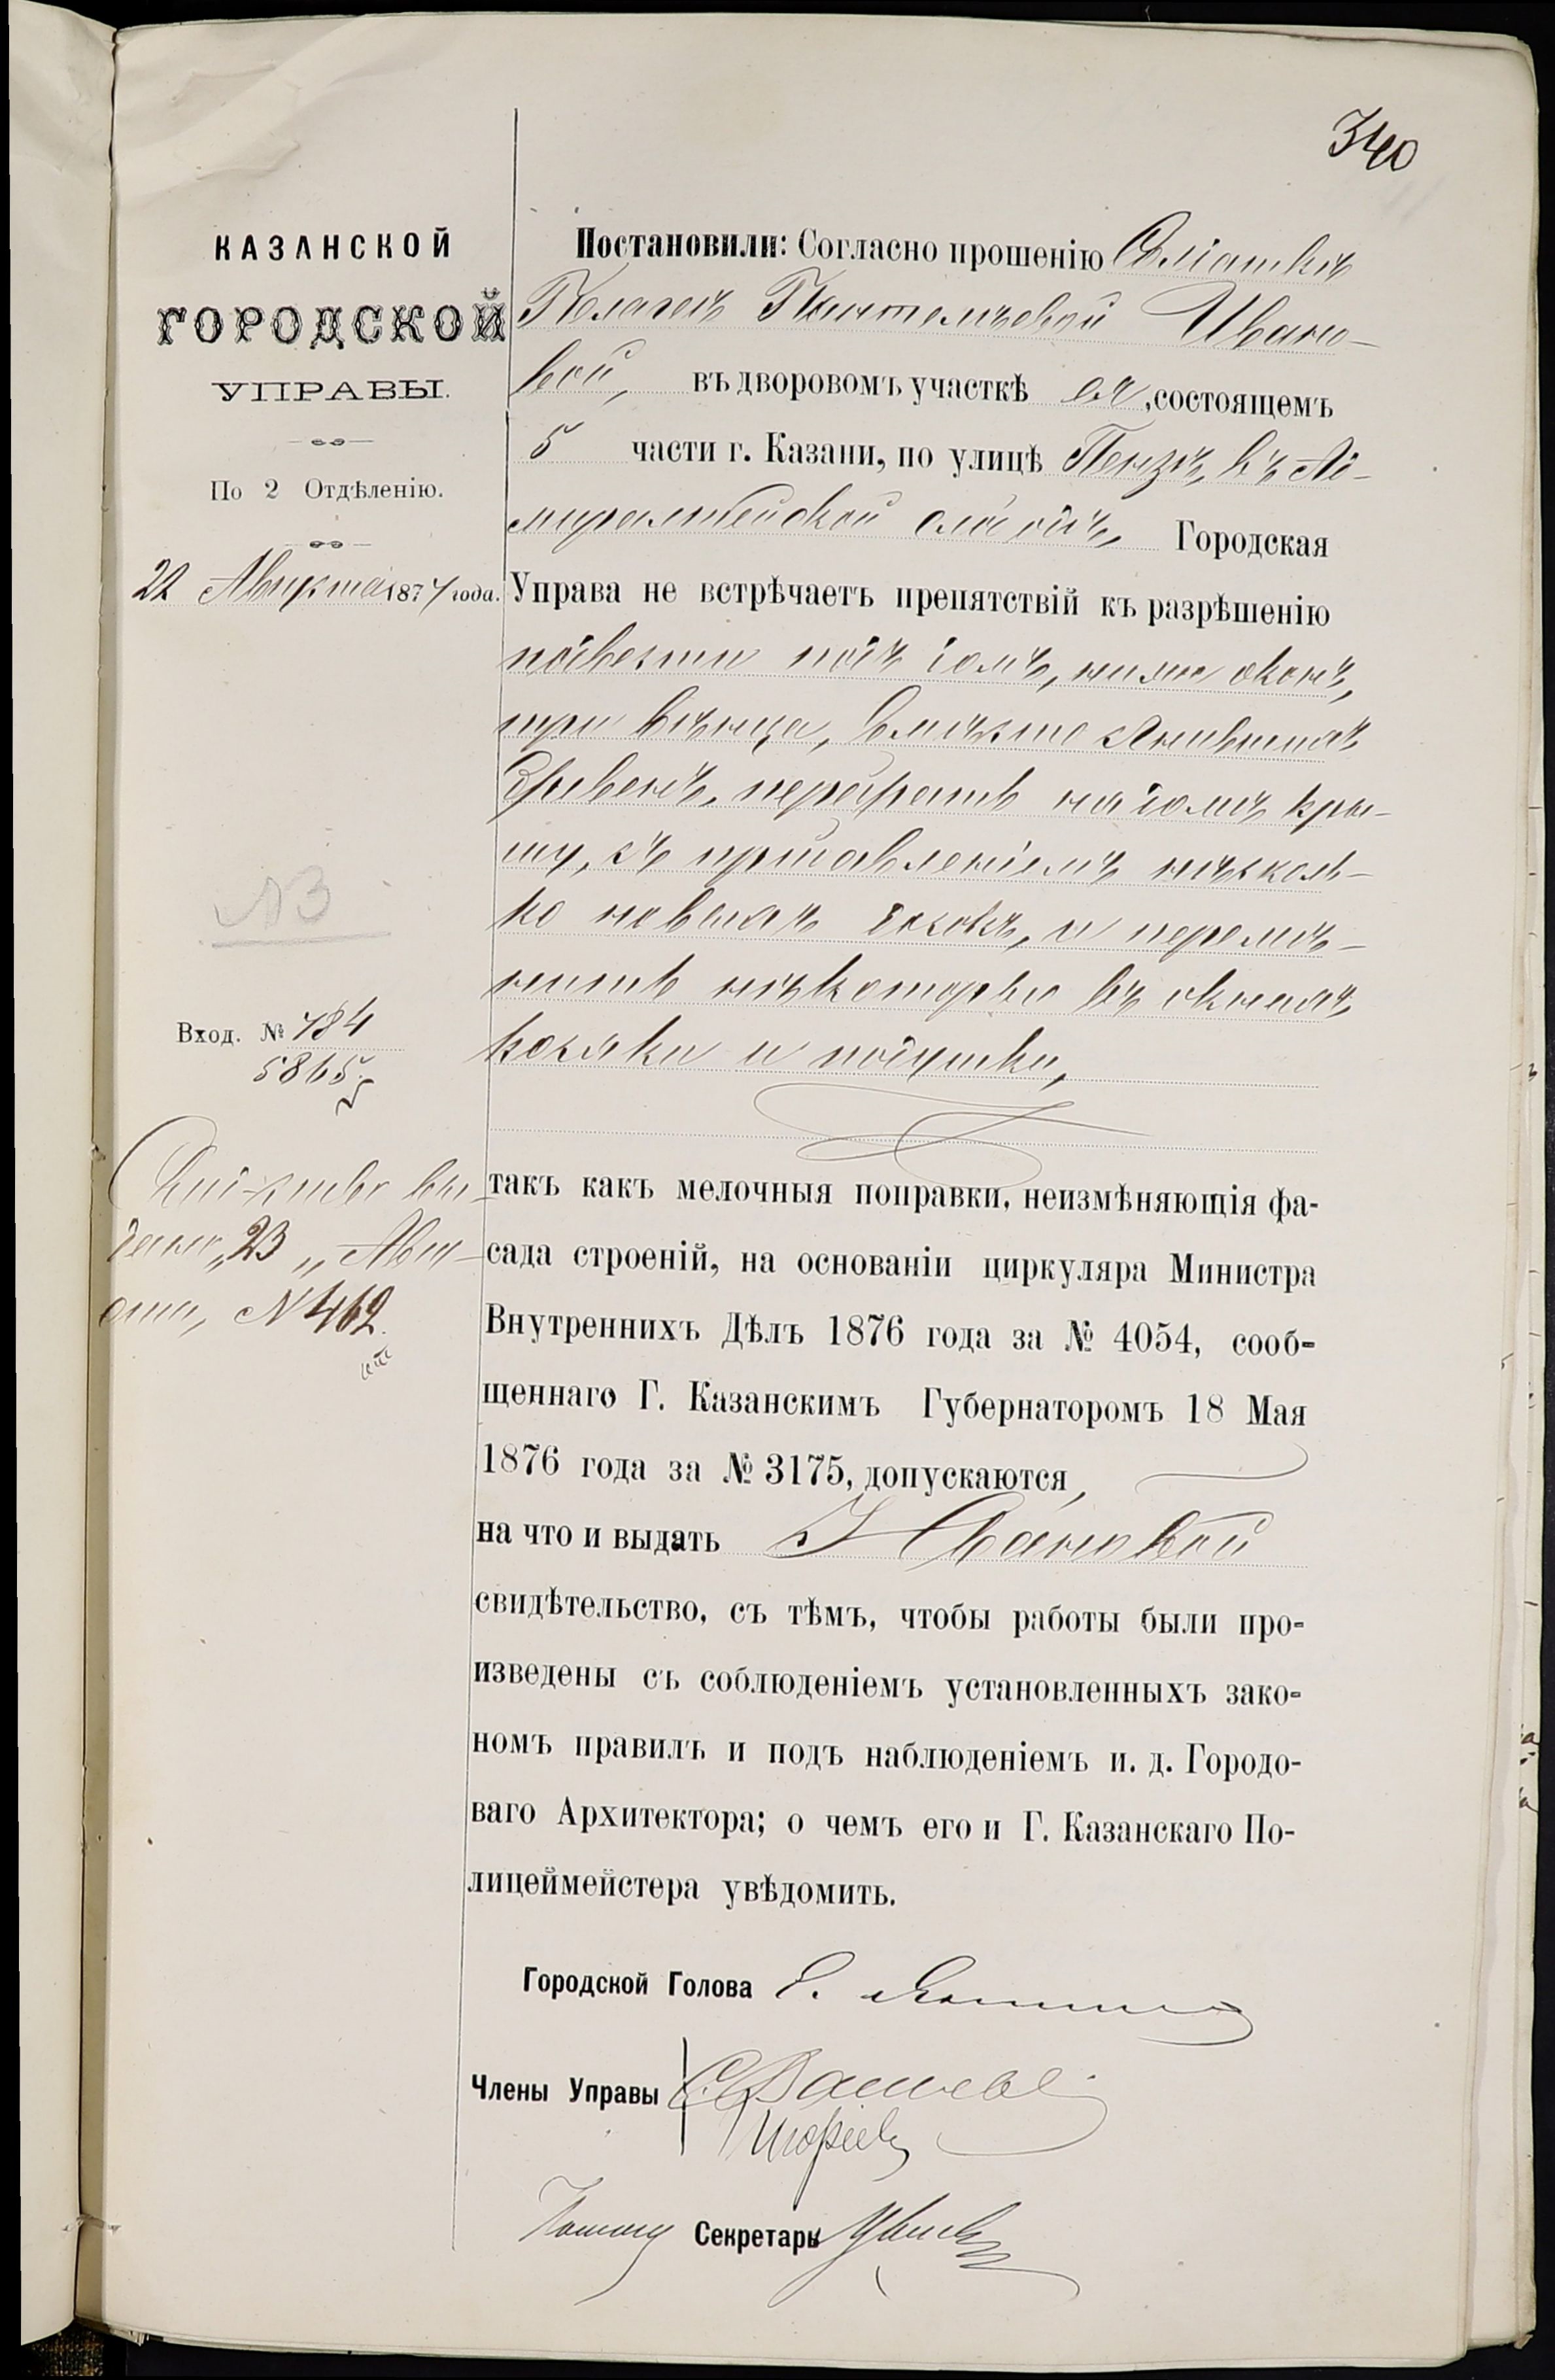 340
КАЗАНСКОЙ
ГОРОДСКОЙ
УПРАВЫ.
По 2 Отдѣленію.
22 Августа 1877 года.
N 3
Вход. № 784
5865
Свид-ство вы-
дано „23„ Авгу-
ста, N 462.
Постановили: Согласно прошенію Солдатки
Пелагеи Пантелѣевой Ивано-
вой, въ дворовомъ участкѣ ея, состоящемъ
5 части г. Казани, по улицѣ Пензѣ, въ Ад-
миралтейской слободѣ, Городская
Управа не встрѣчаетъ препятствій къ разрѣшенію
подвести подъ домъ, ниже оконъ,
три вѣнца, вмѣсто сгнившихъ
бревенъ, перебрать на домѣ кры-
шу, съ прибавленіемъ нѣсколь-
ко новыхъ досокъ, и перемѣ-
нить нѣкоторые въ окнахъ
косяки и подушки,
такъ какъ мелочныя поправки, неизмѣняющія фа-
сада строеній, на основаніи циркуляра Министра
Внутреннихъ Дѣлъ 1876 года за № 4054, сооб-
щеннаго Г. Казанскимъ Губернаторомъ 18 Мая
1876 года за № 3175, допускаются,
на что и выдать Ивановой
свидѣтельство, съ тѣмъ, чтобы работы были про-
изведены съ соблюденіемъ установленныхъ зако-
номъ правилъ и подъ наблюденіемъ и. д. Городо-
ваго Архитектора; о чемъ его и Г. Казанскаго По-
лицеймейстера увѣдомить.
Городской Голова
Члены Управы
Секретарь